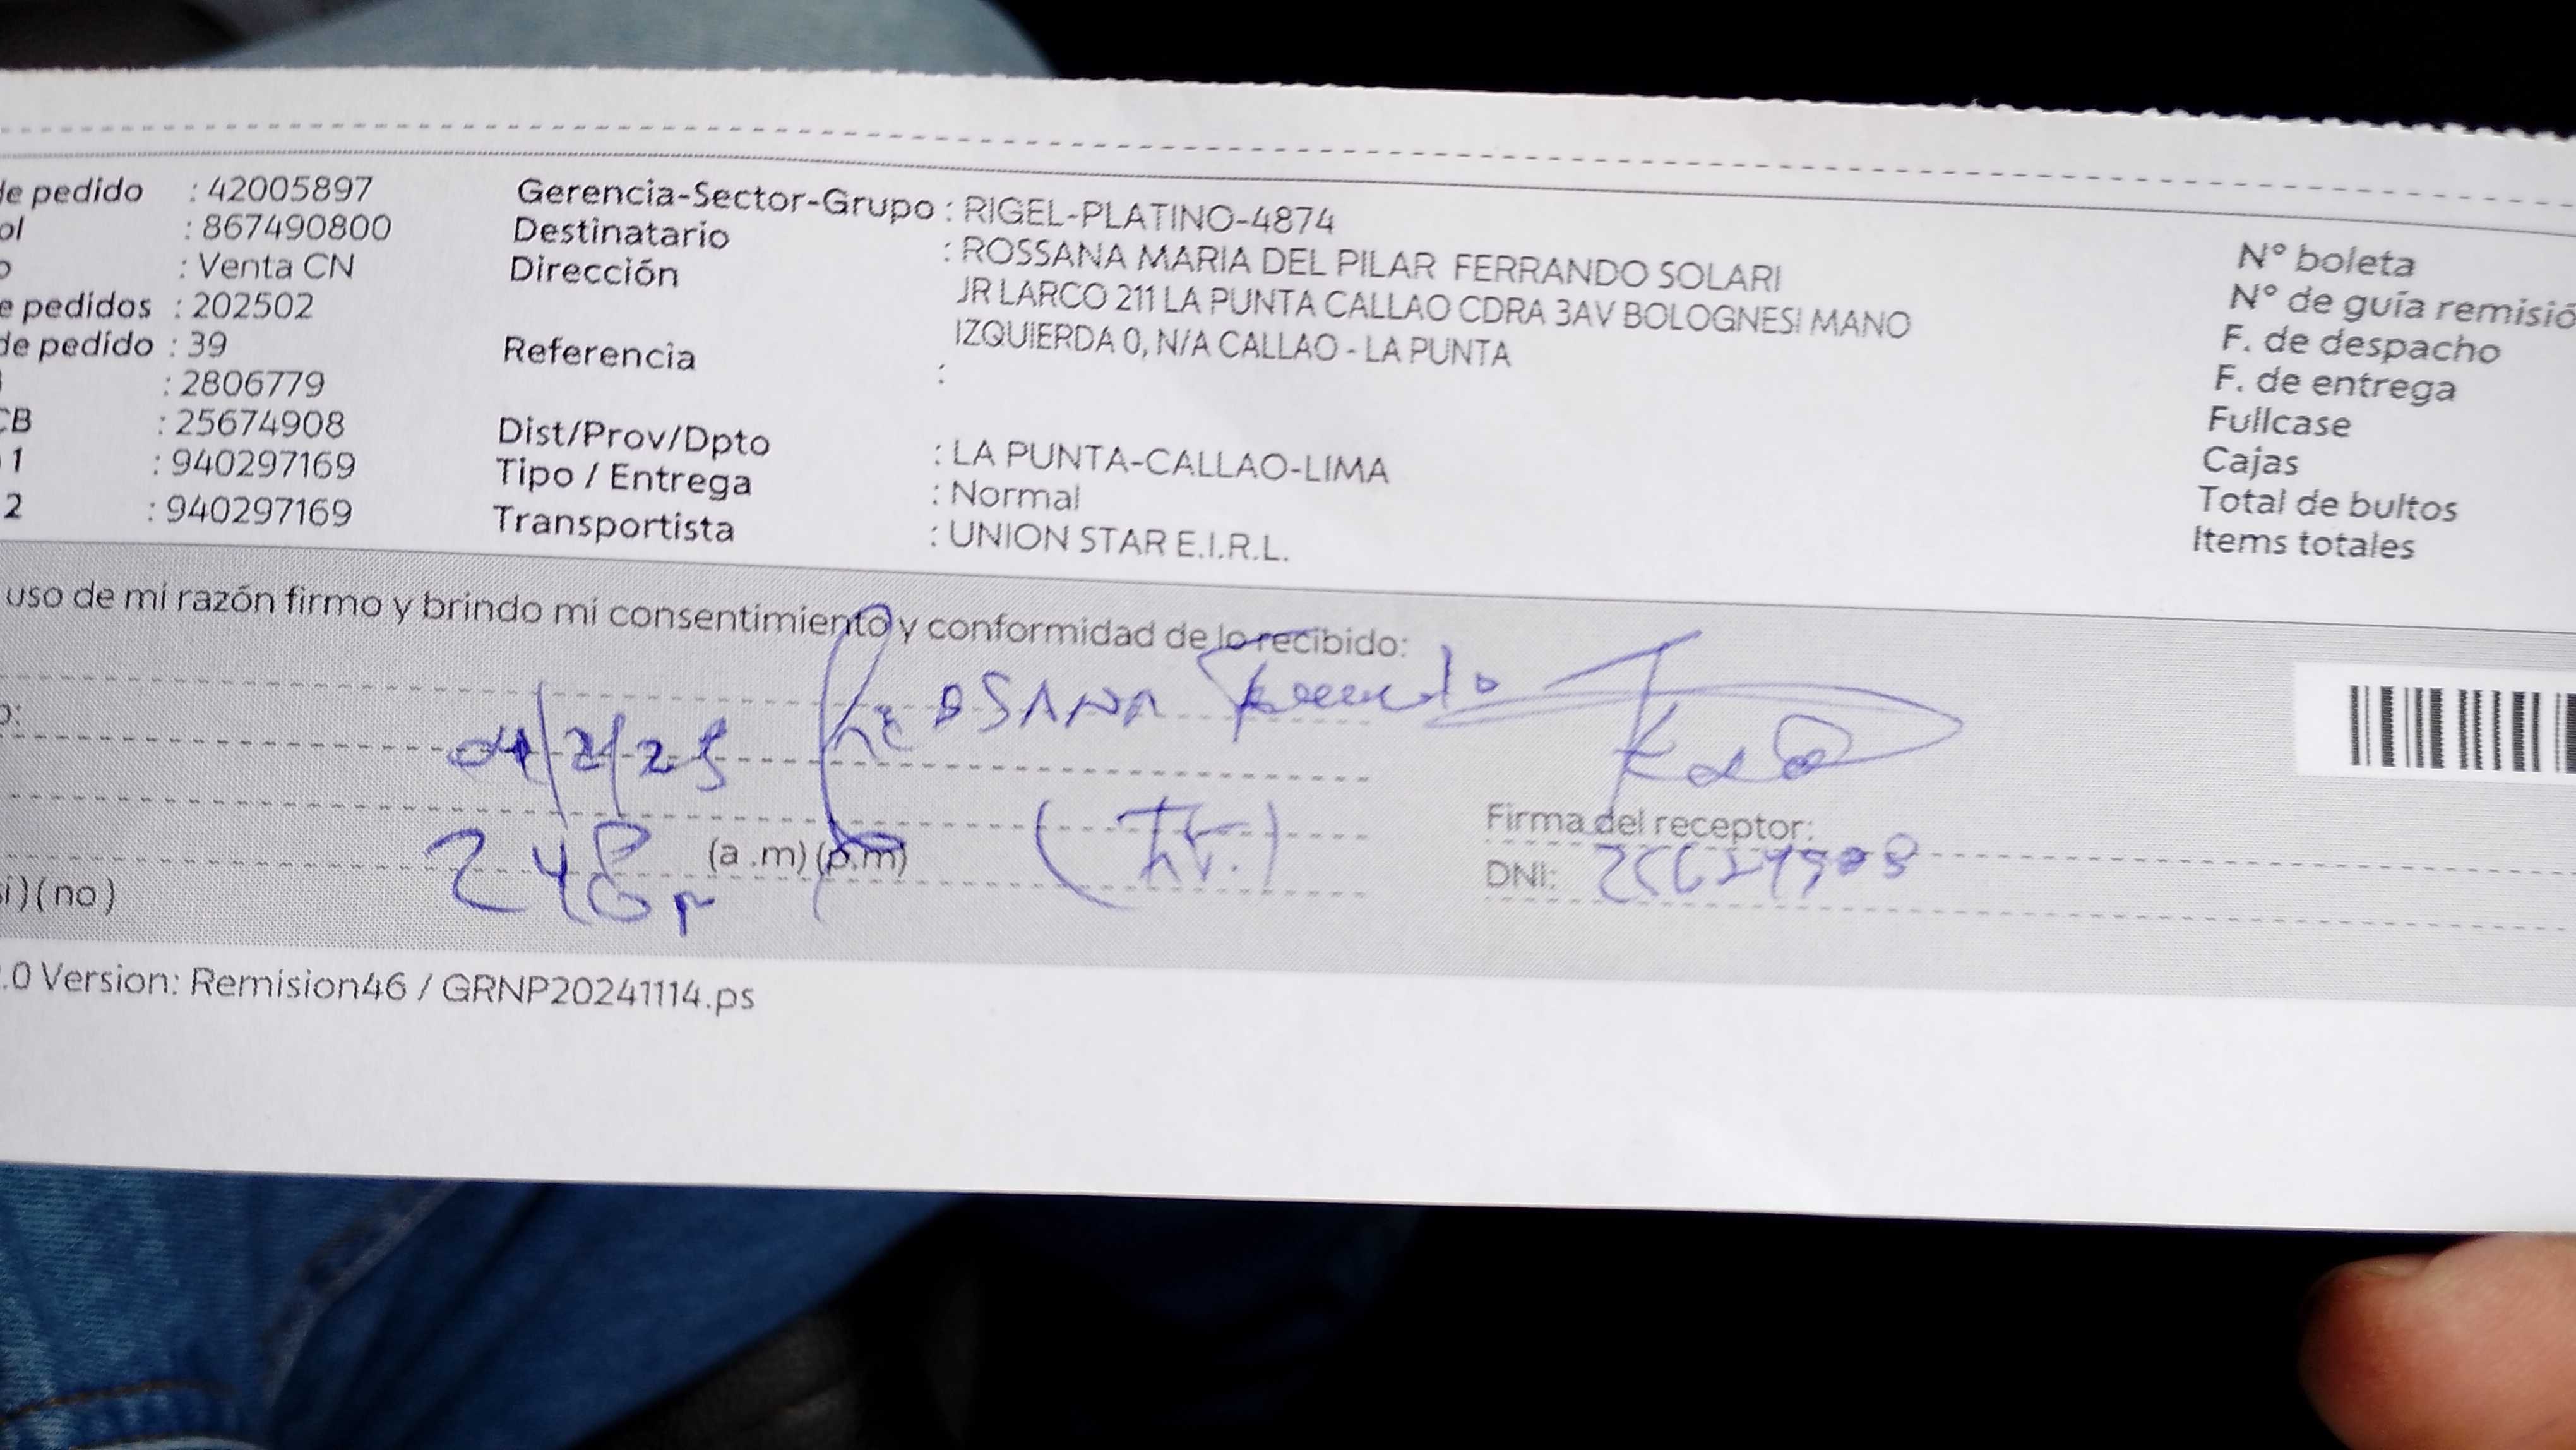 de pedido : 42005897
ol : 867490800
o : Venta CN
e pedidos : 202502
de pedido : 39
: 2806779
CB : 25674908
1 : 940297169
2 : 940297169
Gerencia-Sector-Grupo : RIGEL-PLATINO-4874
Destinatario : ROSSANA MARIA DEL PILAR FERRANDO SOLARI
Dirección JR LARCO 211 LA PUNTA CALLAO CDRA 3AV BOLOGNESI MANO
IZQUIERDA 0, N/A CALLAO - LA PUNTA
Referencia :
Dist/Prov/Dpto : LA PUNTA-CALLAO-LIMA
Tipo / Entrega : Normal
Transportista : UNION STAR E.I.R.L.
N° boleta
N° de guía remisió
F. de despacho
F. de entrega
Fullcase
Cajas
Total de bultos
Items totales
uso de mi razón firmo y brindo mi consentimiento y conformidad de lo recibido:
o:
(a .m) (p.m)
si) (no)
Firma del receptor:
DNI:
.0 Version: Remision46 / GRNP20241114.ps